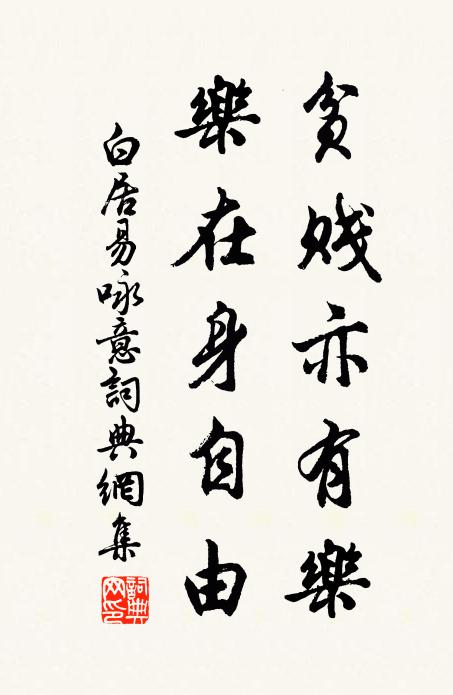 貧賤亦有樂
樂在身自由
白居易咏意詞典網集
詞典网印